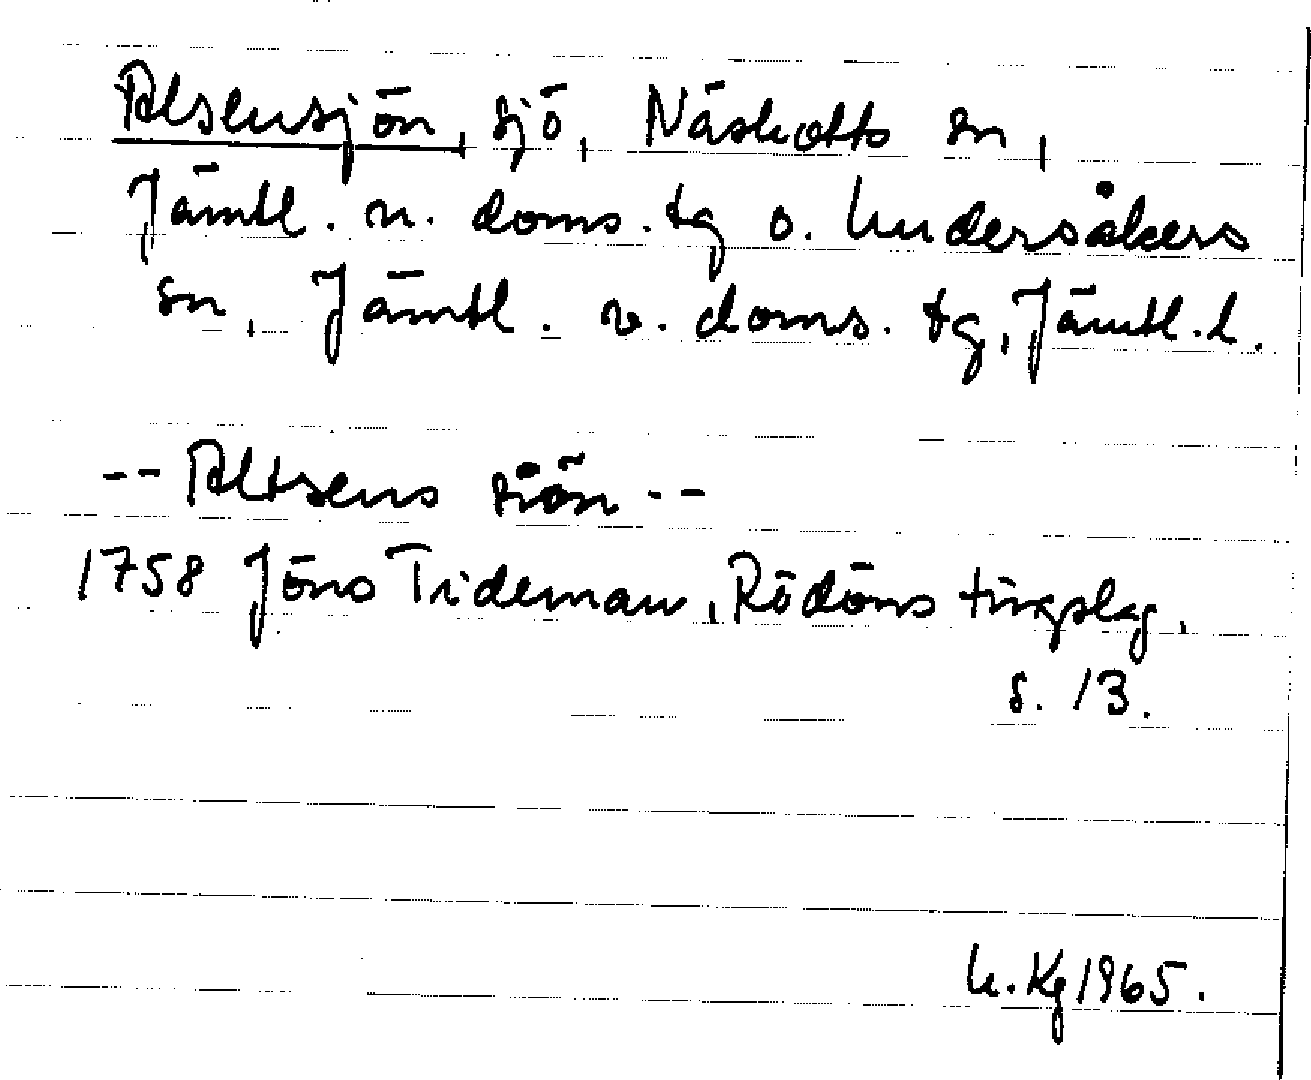 Alsensjön, sjö, Näskotts sn,
Jämtl. n. doms. tg o. Undersåkers
sn, Jämtl. v. doms. tg, Jämtl. l.
-- Altsens siön --
1758 Jöns Tideman, Rödöns tingslag,
s. 13.
U. Kg 1965.